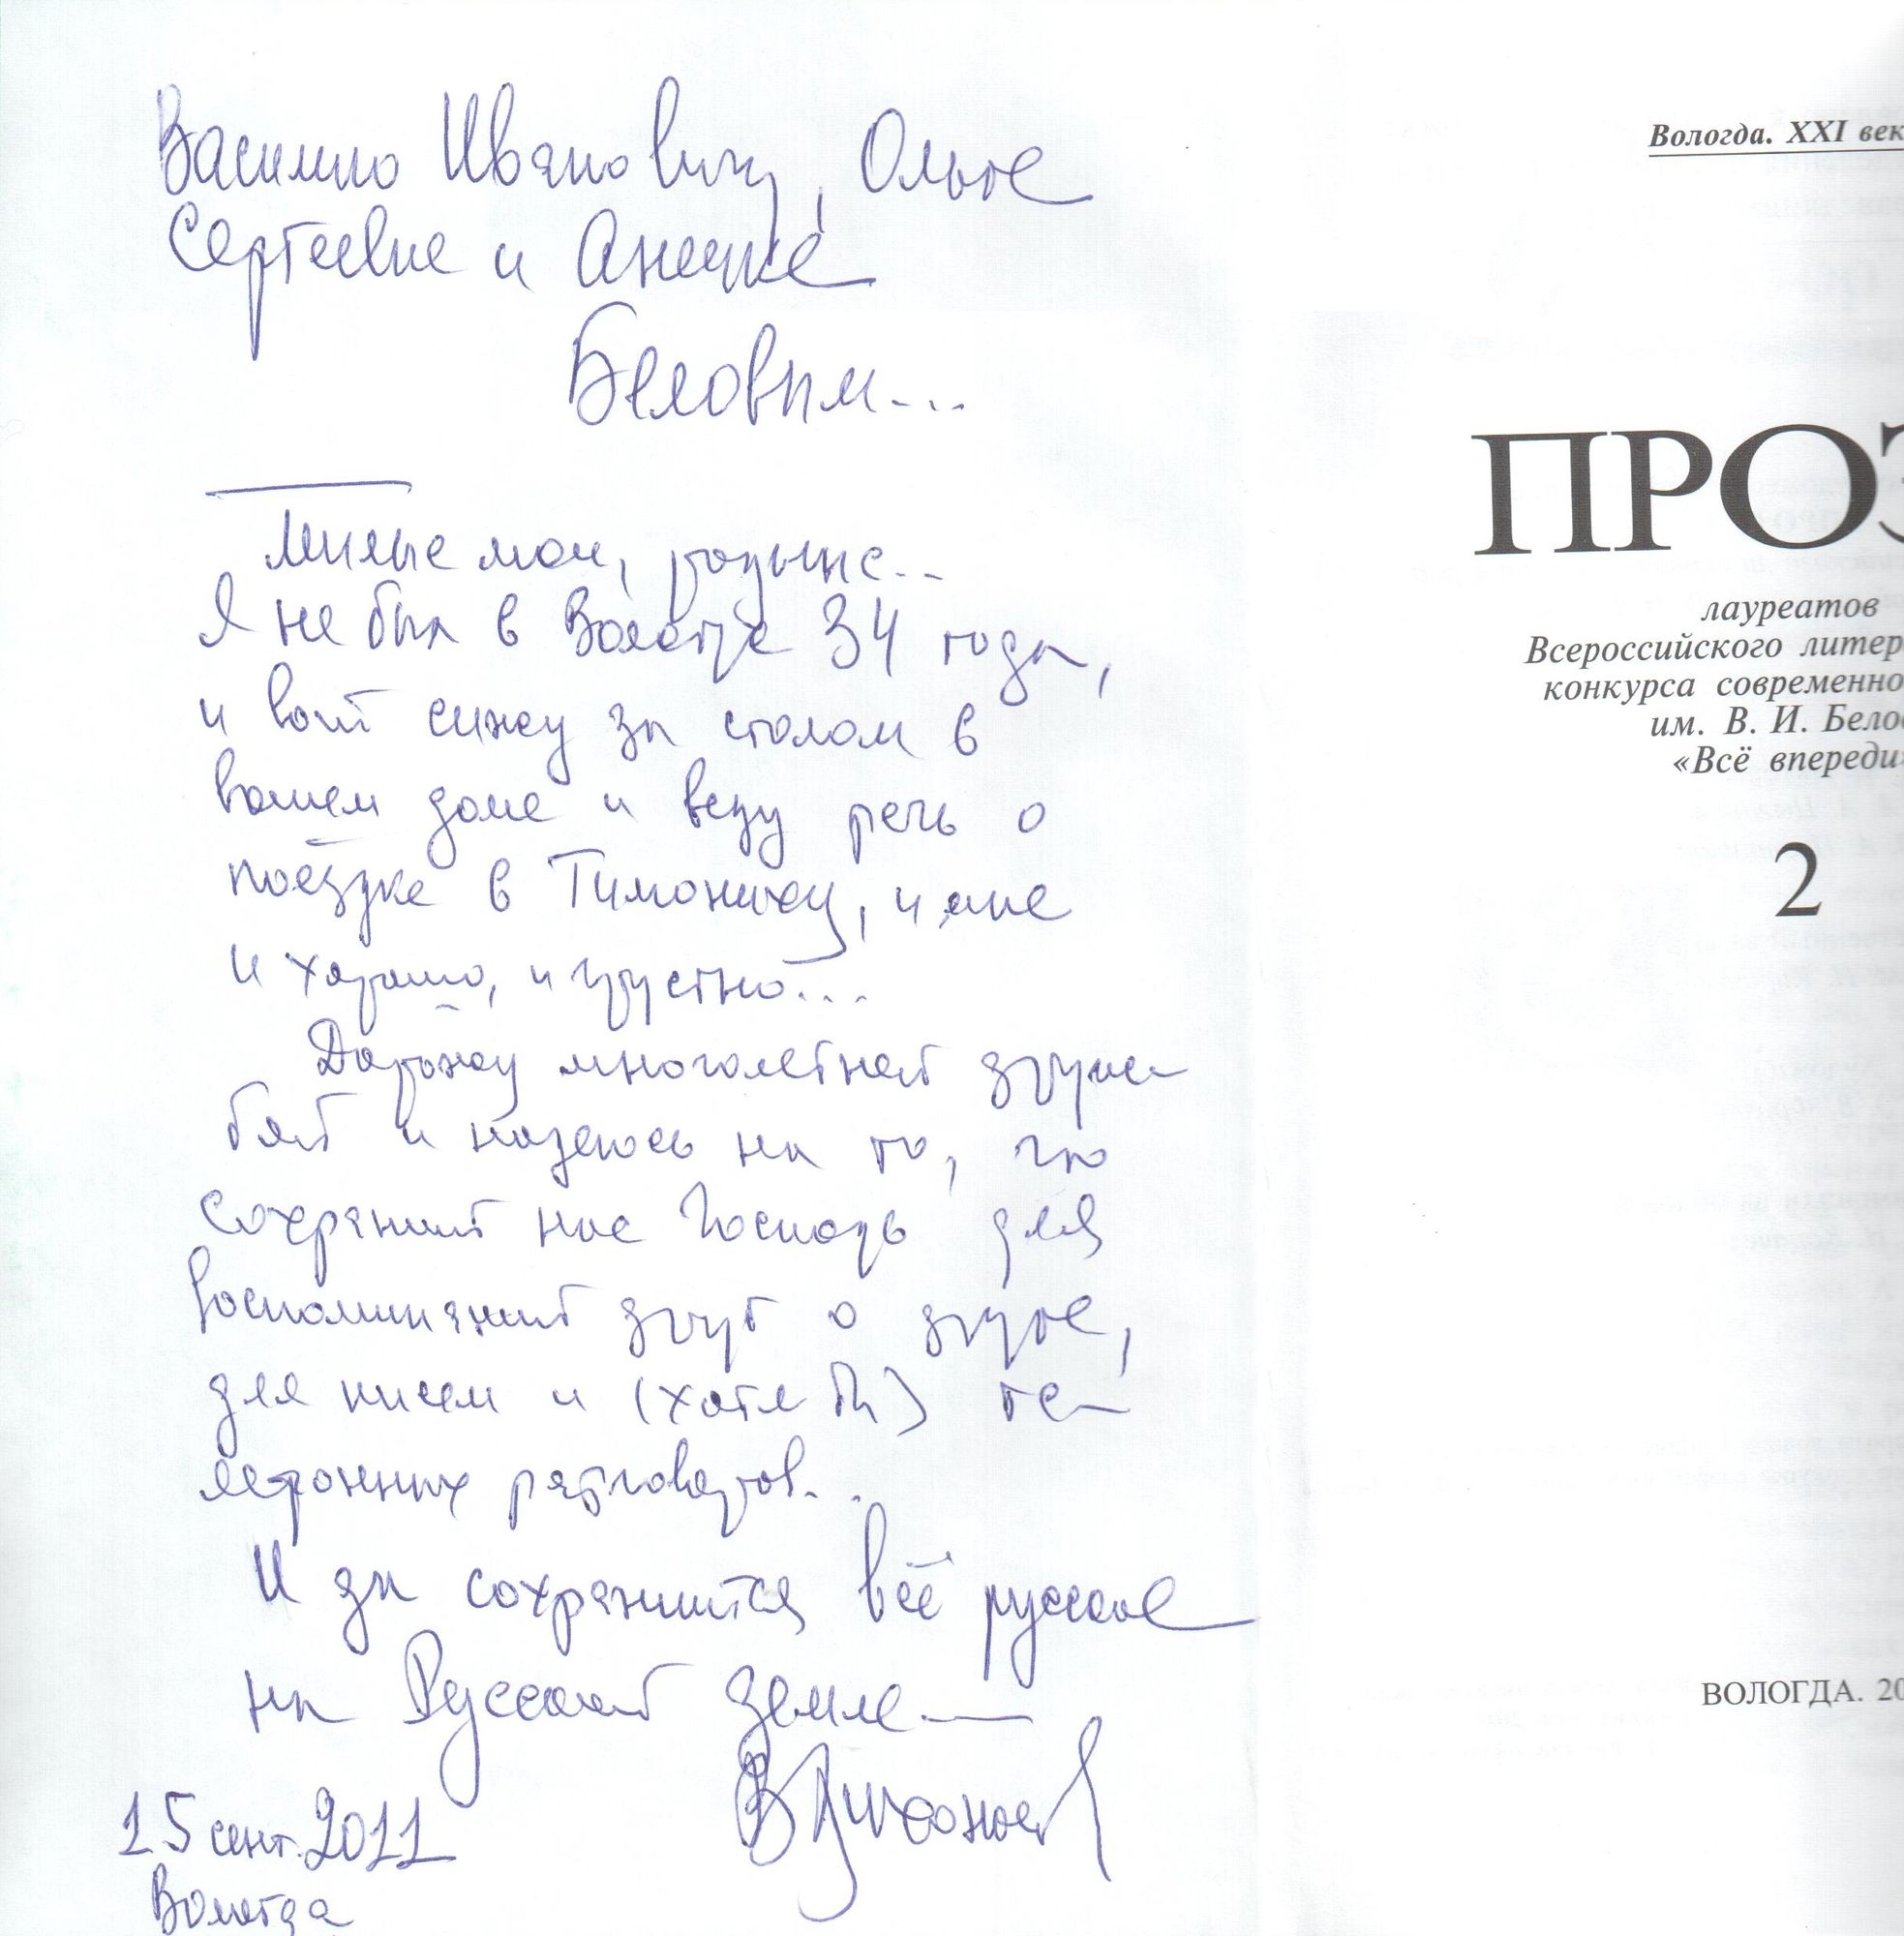 Василию Ивановичу, Ольге
Сергеевне и Анечке
Беловым...
Милые мои, родные...
Я не был в Вологде 34 года,
и вот сижу за столом в
вашем доме и веду речь о
поездке в Тимониху, и мне
и хорошо, и грустно...
Дорожу многолетней друж-
бой и надеюсь на то, что
сохранит нас Господь для
воспоминаний друг о друге,
для писем и (хотя бы) те-
лефонных разговоров...
И да сохранится всё русское
на Русской земле
15 сент. 2011
Вологда
Вологда. XXI век
ПРОЗ
лауреатов
Всероссийского литер
конкурса современно
им. В. И. Бело
«Всё впереди»
2
ВОЛОГДА. 20